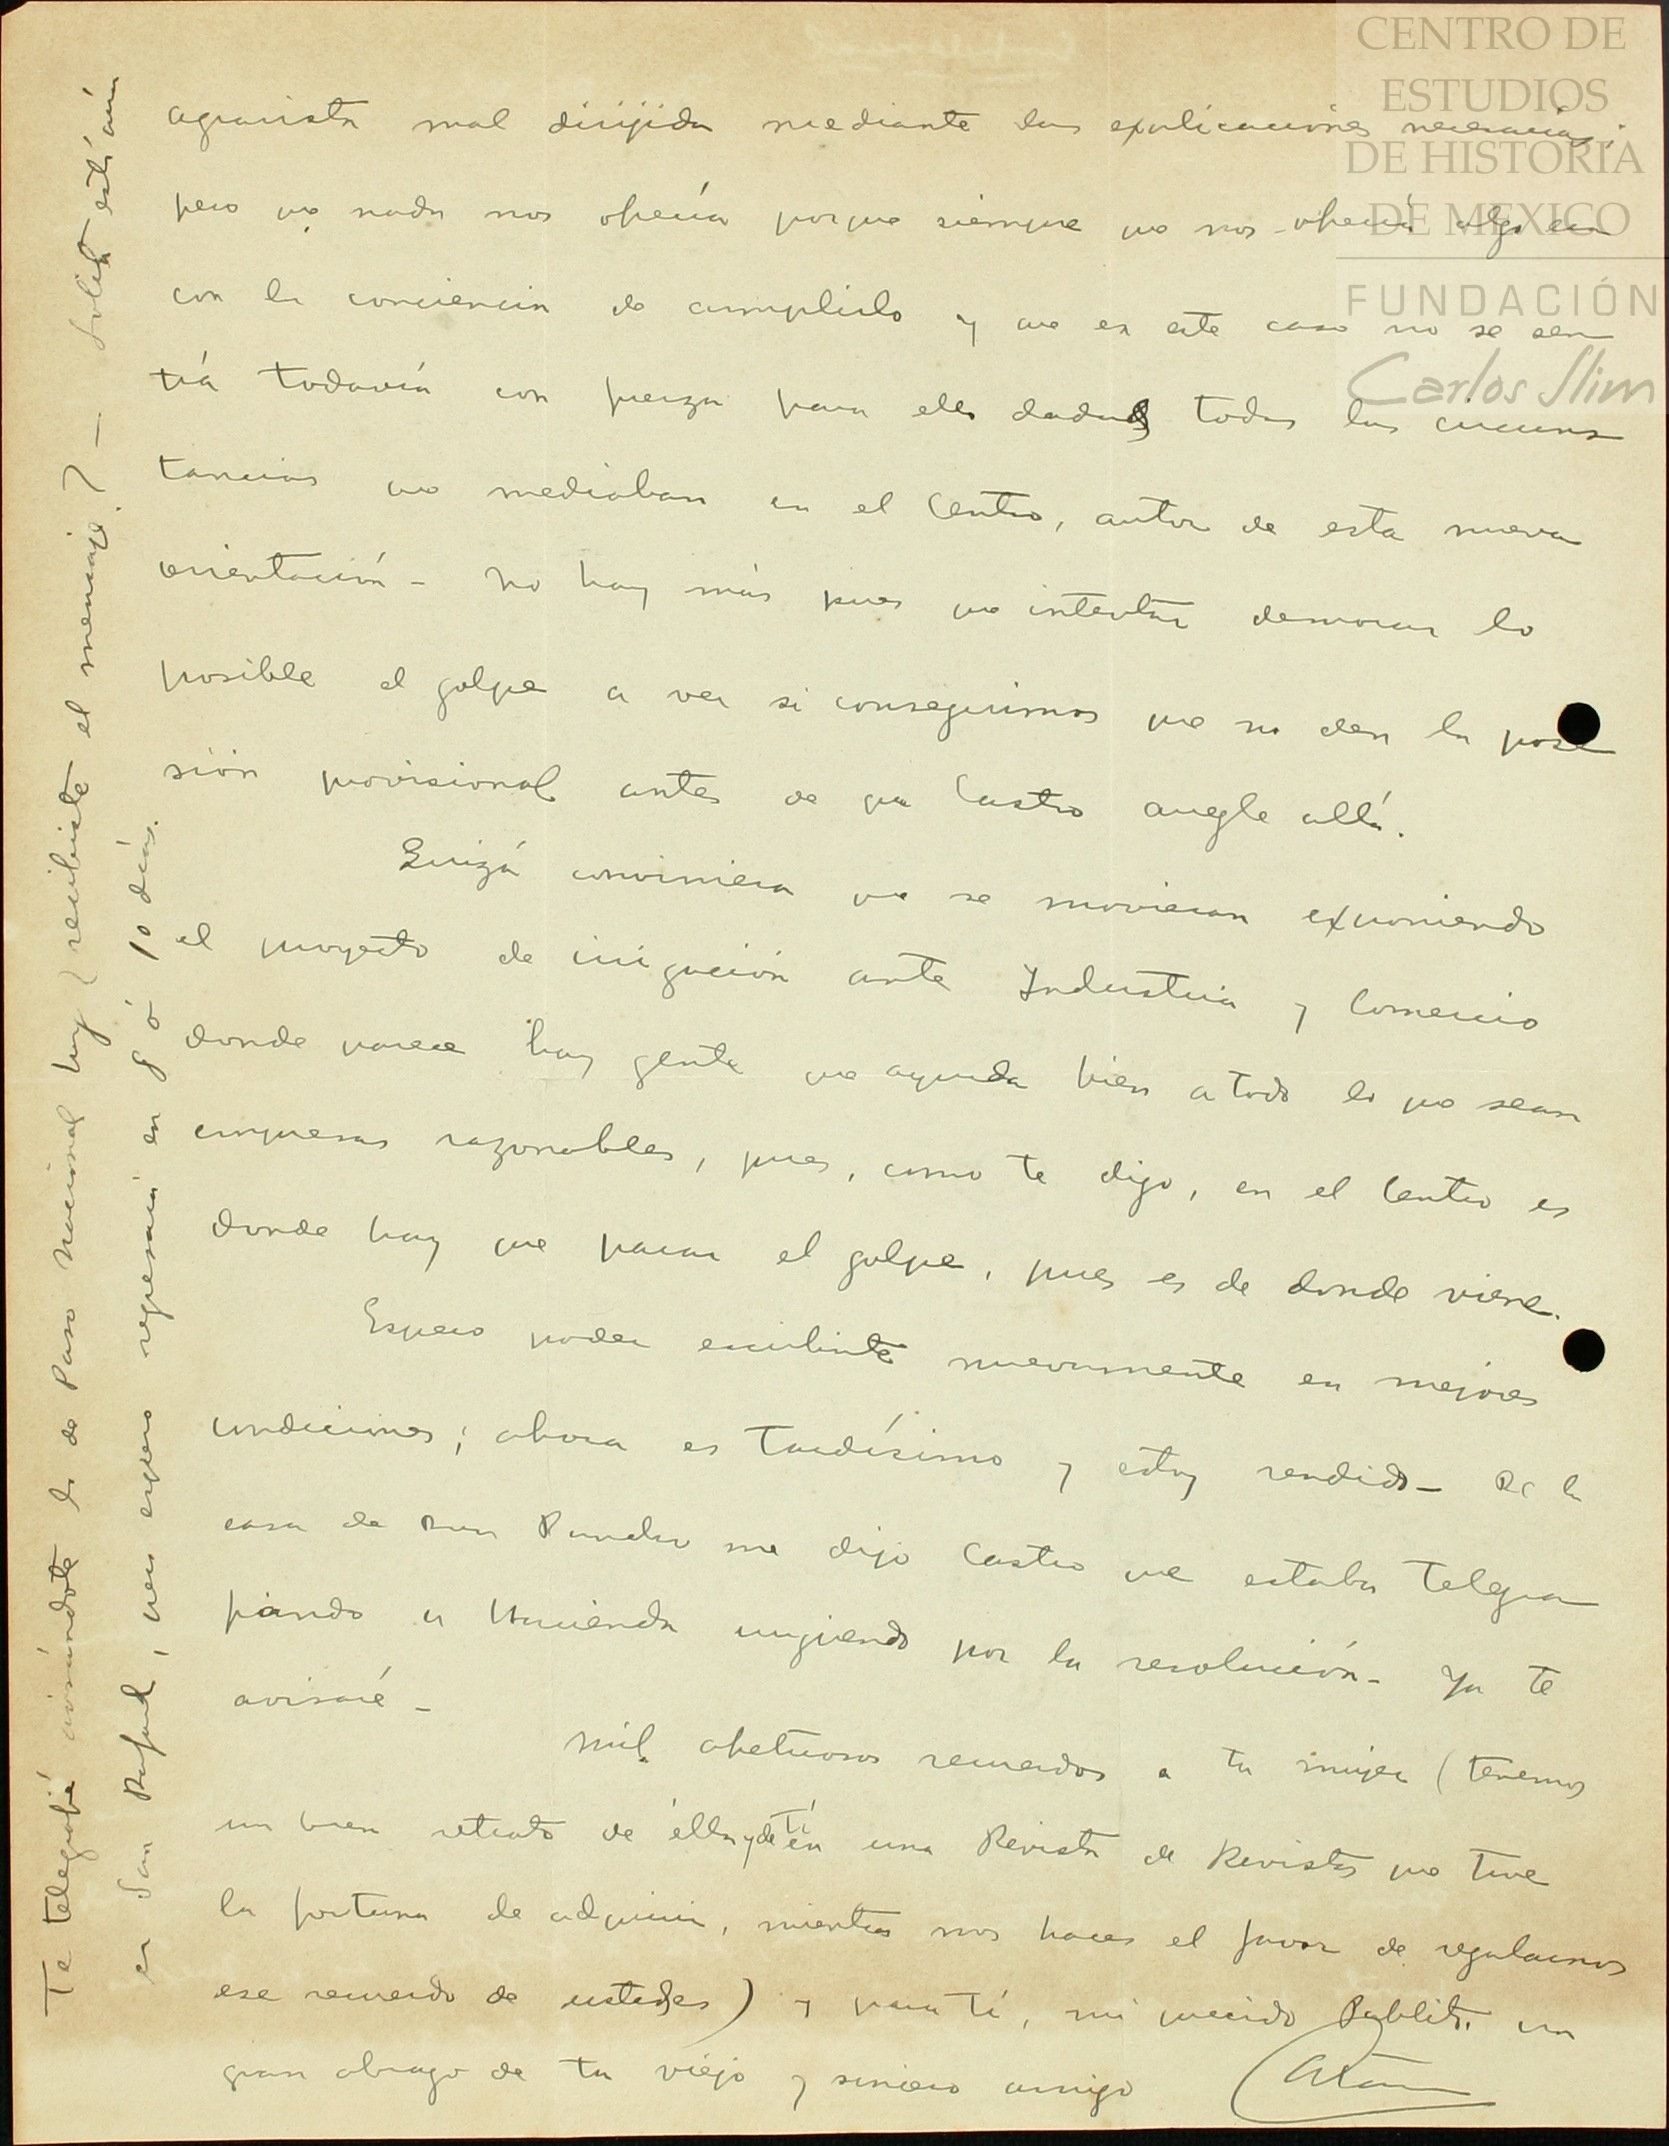 CENTRO DE
ESTUDIOS
DE HISTORIA
DE MEXICO
FUNDACIÓN
Carlos Slim
agrarista mal dirijida mediante las explicaciones necesarias;
pero que nada nos ofrecía porque siempre que nos ofrecía algo era
con la conciencia de cumplirlo y que en este caso no se sen
tía todavía con fuerza para ello dadas todas las circuns
tancias que mediaban en el Centro, autor de esta nueva
orientación - No hay más pues que intentar demorar lo
posible el golpe a ver si conseguimos que no den la pose
sión provisional antes de que Castro arregle allá.
Quizá conviniera que se movieran exponiendo
el proyecto de irrigación ante Industria y Comercio
donde parece hay gente que ayuda bien a todo lo que sean
empresas razonables, pues, como te digo, en el Centro es
donde hay que parar el golpe, pues es de donde viene.
Espero poder escribirte nuevamente en mejores
condiciones; ahora es tardísimo y estoy rendido - De la
casa de Don me dijo Castro que estaba telegra
fiando a Hacienda urgiendo por la resolución - Ya te
avisaré -
Mil afectuosos recuerdos a tu mujer (tenemos
un buen retrato de élla y de tí en una Revista de Revistas que tuve
la fortuna de adquirir, mientras nos haces el favor de regalarnos
ese recuerdo de ustedes) y para tí, mi querido Pablito, un
gran abrazo de tu viejo y sincero amigo
Te telegrafié avisándote lo de Paso Nacional hoy ¿recibiste el mensaje? - Lolita está aún
en San Rafael, pero espero regresará en 8 ó 10 días.